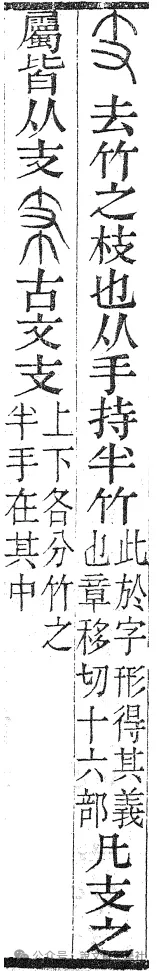 支去竹之枝也从手持半竹此於字形得其義也章移切十六部凡支之
屬皆从支𠦙古文支上下各分竹之半手在其中
公众号